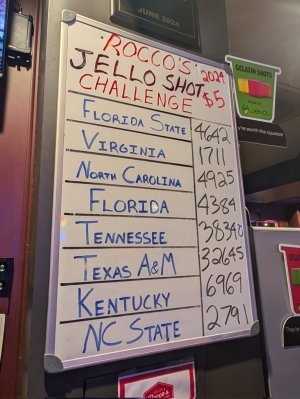 JUNE 2024
ROCCO'S
JELLO SHOT 2024
CHALLENGE $5
FLORIDA STATE 4642
VIRGINIA 1711
NORTH CAROLINA 4925
FLORIDA 4384
TENNESSEE 38340
TEXAS A&M 32645
KENTUCKY 6969
NC STATE 2791
GELATIN SHOTS
JEVO
They're worth the squeeze
They're
Rocco's